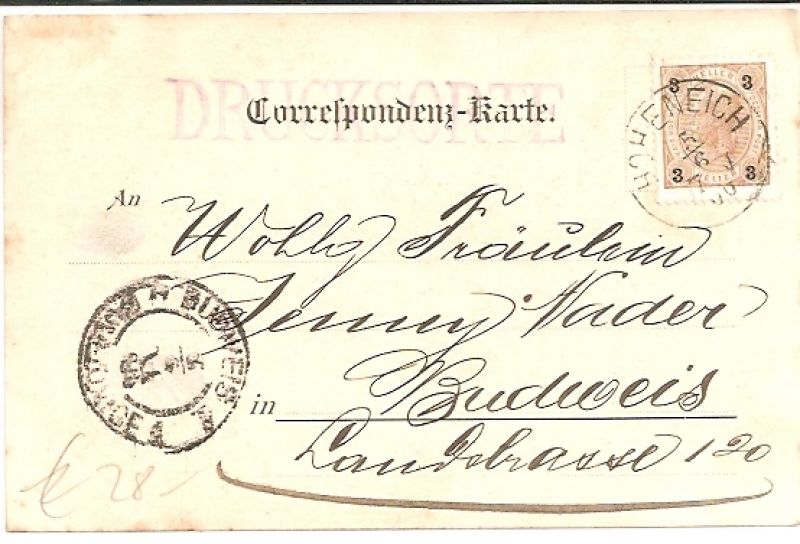 DRUCKSORTE
Correspondenz-Karte.
3 HELLER 3
3 3
HOHENEICH
An
Wohlg Fräulein
Jenny Nader
BUDWEIS
in Budweis
Landstrasse 120
28-